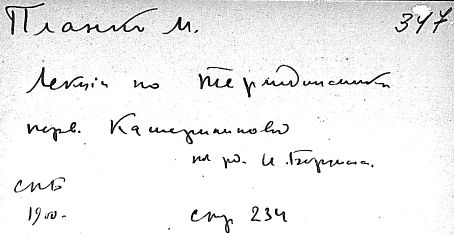 Планк М. 347
Лекции по термодинамике
перв. Катерининов
под ред. И. Боргмана.
СПБ
1900. стр 234